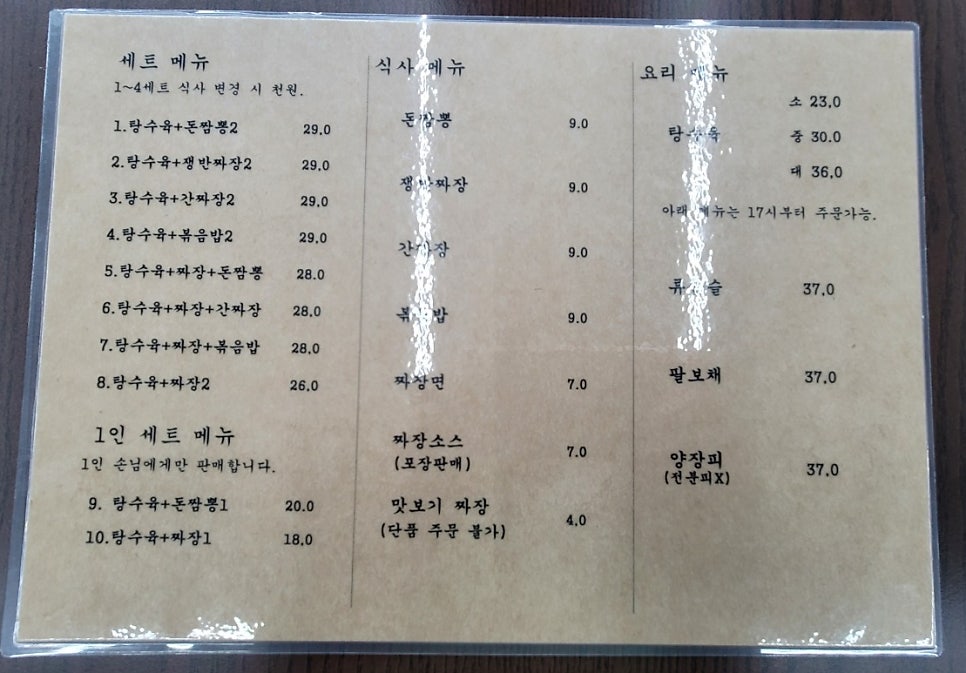 세트 메뉴
1~4세트 식사 변경 시 천원.
1.탕수육+돈짬뽕2 29.0
2.탕수육+쟁반짜장2 29.0
3.탕수육+간짜장2 29.0
4.탕수육+볶음밥2 29.0
5.탕수육+짜장+돈짬뽕 28.0
6.탕수육+짜장+간짜장 28.0
7.탕수육+짜장+볶음밥 28.0
8.탕수육+짜장2 26.0
1인 세트 메뉴
1인 손님에게만 판매합니다.
9. 탕수육+돈짬뽕1 20.0
10.탕수육+짜장1 18.0
식사 메뉴
돈짬뽕 9.0
쟁반짜장 9.0
간짜장 9.0
볶음밥 9.0
짜장면 7.0
짜장소스
(포장판매) 7.0
맛보기 짜장
(단품 주문 불가) 4.0
요리 메뉴
소 23.0
탕수육 중 30.0
대 36.0
아래 메뉴는 17시부터 주문가능.
류산슬 37.0
팔보채 37.0
양장피
(전분피X) 37.0